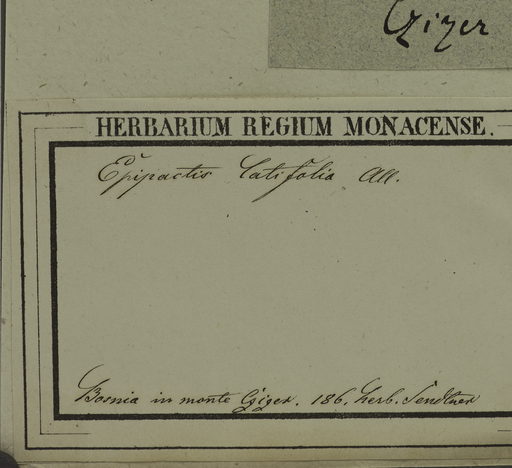 Cziger
HERBARIUM REGIUM MONACENSE.
Epipactis latifolia All.
Bosnia in monte Cziger. 186. herb. Sendtner